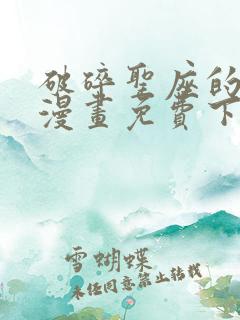 破碎聖座的
漫畫免費下
雪蝴蝶
未经同意禁止转载